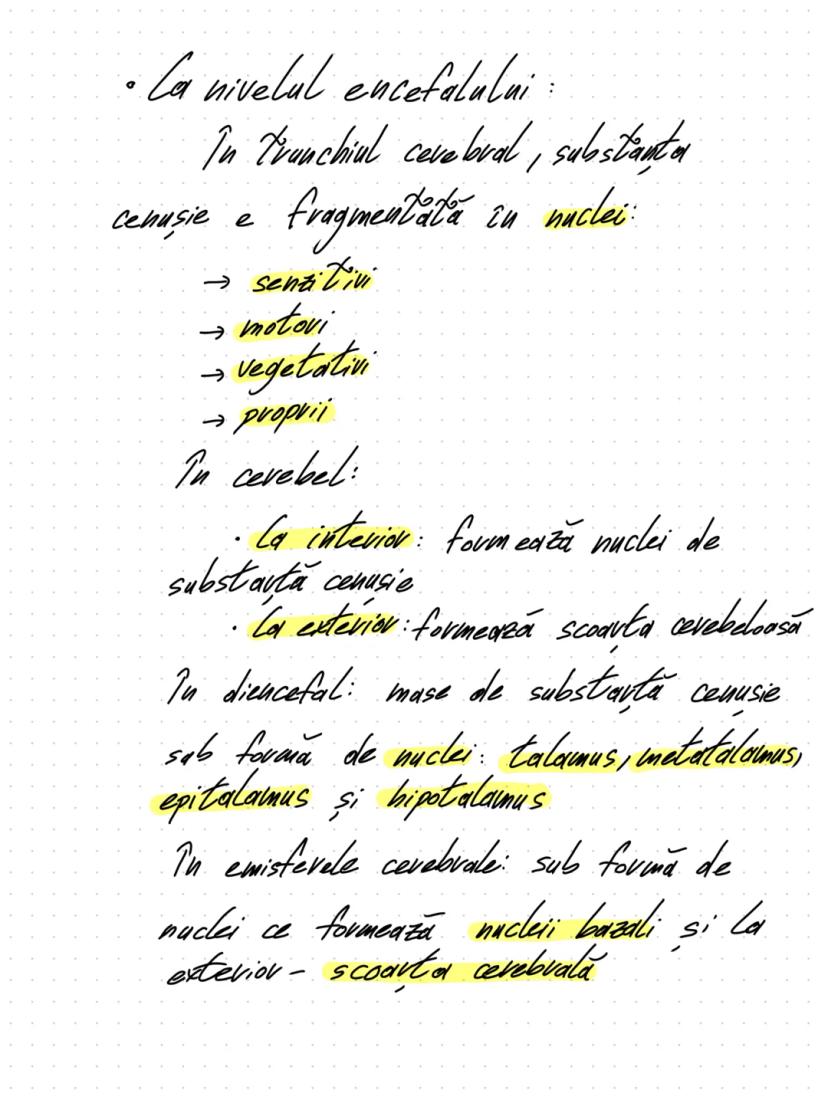 • La nivelul encefalului :
În trunchiul cerebral, substanța
cenușie e fragmentată în nuclei:
→ senzitivi
→ motori
→ vegetativi
→ proprii
În cerebel:
· La interior: formează nuclei de
substanță cenușie
· La exterior: formează scoarța cerebeloasă
În diencefal: mase de substanță cenușie
sub formă de nuclei: talamus, metatalamus,
epitalamus și hipotalamus
În emisferele cerebrale: sub formă de
nuclei ce formează nucleii bazali și la
exterior - scoarța cerebrală